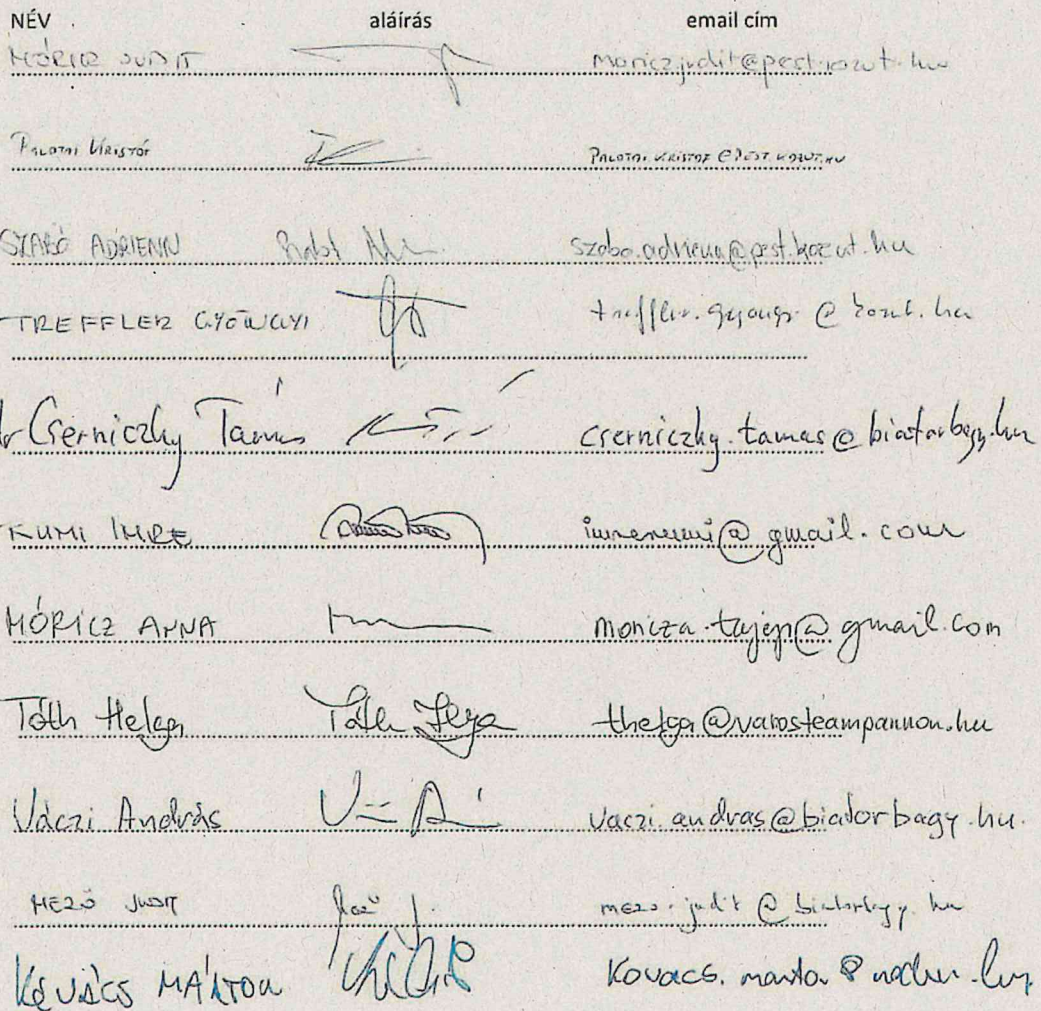 NÉV aláírás email cím
MÓRICZ JUDIT moricz.judit@pest.kozut.hu
PALOTAI KRISTÓF PALOTAI.KRISTOF@PEST.KOZUT.HU
SZABÓ ADRIENN Szabó szabo.adrienn@pest.kozut.hu
TREFFLER GYÖNGYI treffler.gyongyi@kozut.hu
dr Cserniczky Tamás cserniczky.tamas@biatorbagy.hu
KUMI IMRE @gmail.com
MÓRICZ ANNA moricza.tajep@gmail.com
Tóth Helga Tóth Helga thelga@varosteampannon.hu
Váczi András vaczi.andras@biatorbagy.hu.
MEZŐ JUDIT Mező J. mezo.judit@biatorbagy.hu
KOVÁCS MÁRTON